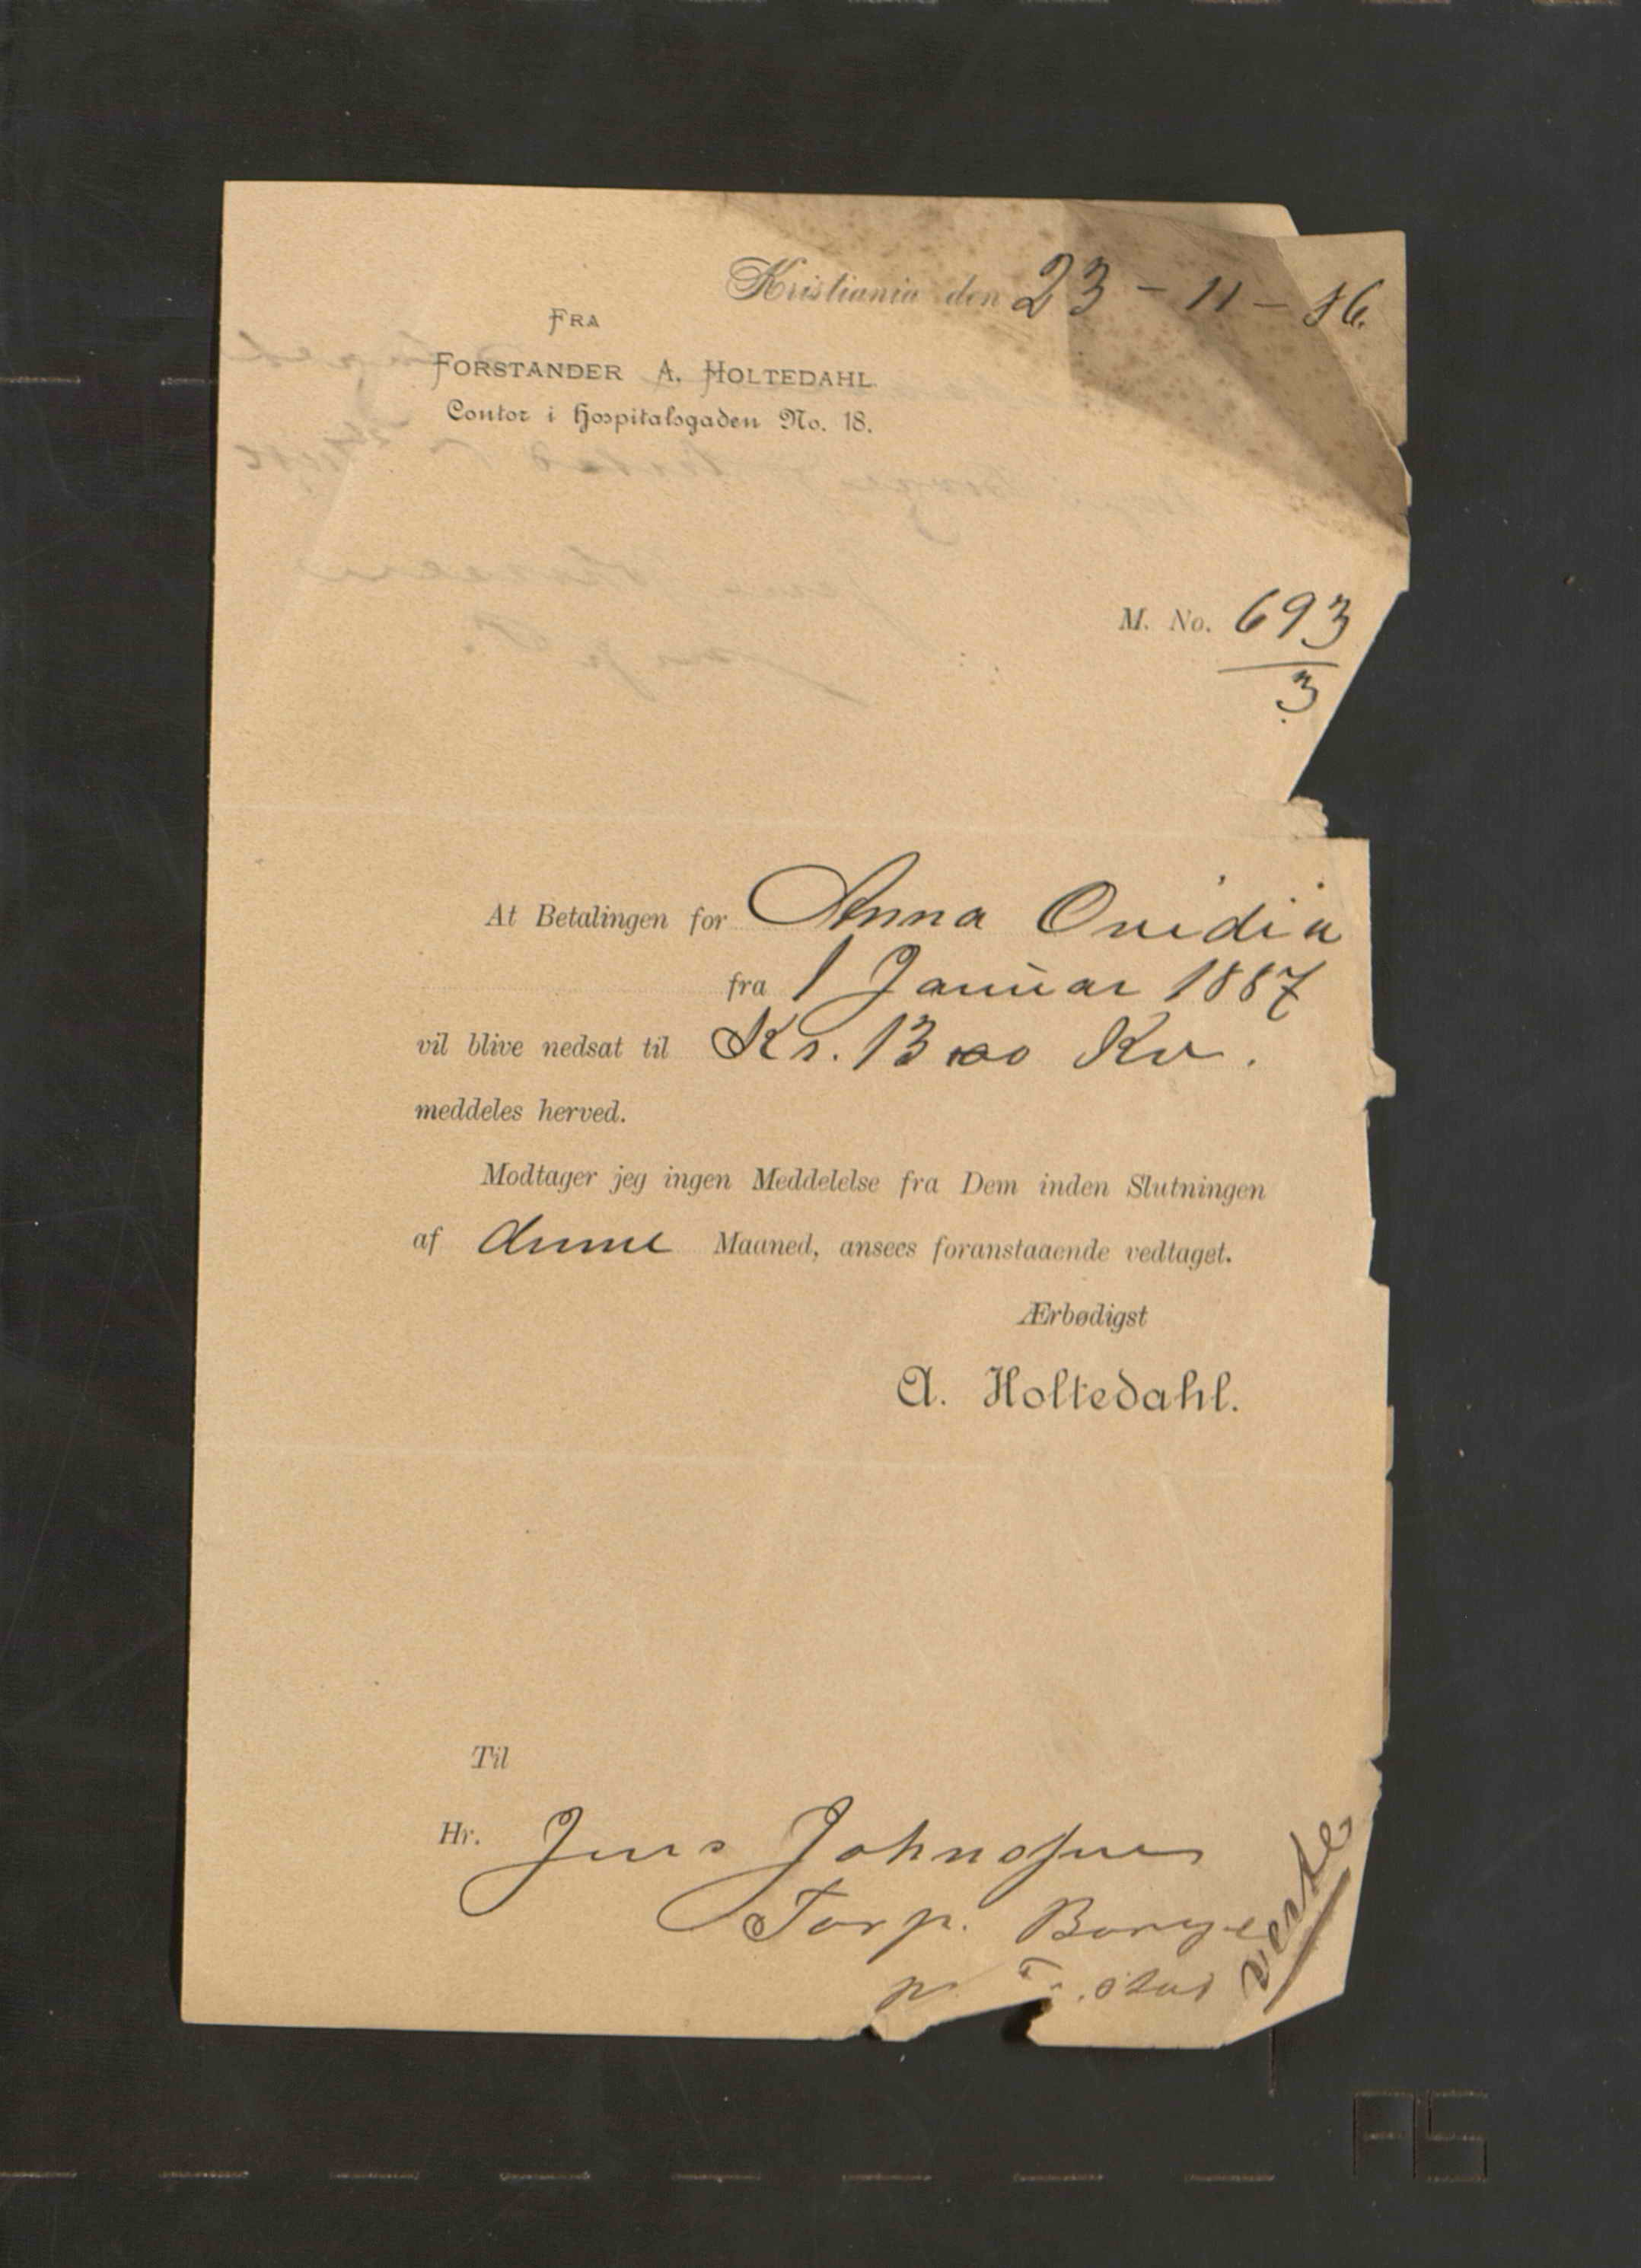 Kristiania den 23 - 11 - 86.
FRA
FORSTANDER A. HOLTEDAHL.
Contor i Hospitalsgaden No. 18.
M. No. 693
3
At Betalingen for Anna Ovidia
fra 1 Januar 1887
vil blive nedsat til Kr. 13 00 Kv.
meddeles herved.
Modtager jeg ingen Meddelelse fra Dem inden Slutningen
af denne Maaned, ansees foranstaaende vedtaget.
Ærbødigst
A. Holtedahl.
Til
Hr. Jens Johnsen
Torp. Borge
pr.
verte